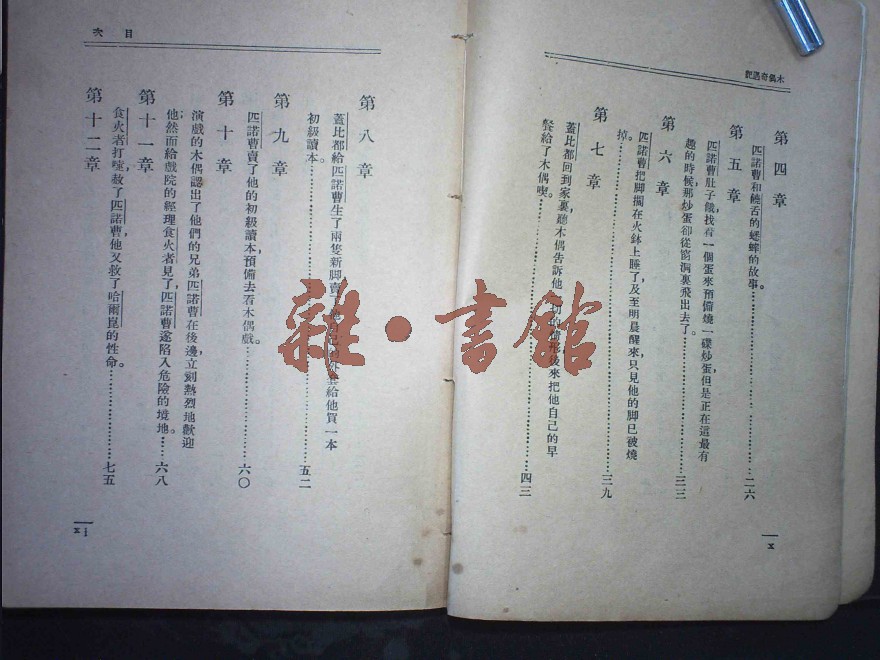 木偶奇遇記
第四章
匹諾曹和饒舌的蟋蟀的故事。……二六
第五章
匹諾曹肚子餓,找着一個蛋來預備燒一碟炒蛋,但是正在這最有
趣的時候,那炒蛋卻從窗洞裏飛出去了。……三三
第六章
匹諾曹把脚擱在火鉢上睡了,及至明晨醒來,只見他的脚已被燒
掉。……三九
第七章
蓋比都回到家裏,聽木偶告訴他一切的情形,後來把他自己的早
餐給了木偶喫。……四三
x
目次
第八章
蓋比都給匹諾曹生了兩隻新脚,賣了他自己的外套給他買一本
初級讀本。……五二
第九章
匹諾曹賣了他的初級讀本預備去看木偶戲。……六〇
第十章
演戲的木偶認出了他們的兄弟匹諾曹在後邊,立刻熱烈地歡迎
他;然而給戲院的經理食火者見了,匹諾曹遂陷入危險的境地。……六八
第十一章
食火者打嚏,赦了匹諾曹,他又救了哈爾崑的性命。……七五
第十二章
xi
雜·書館